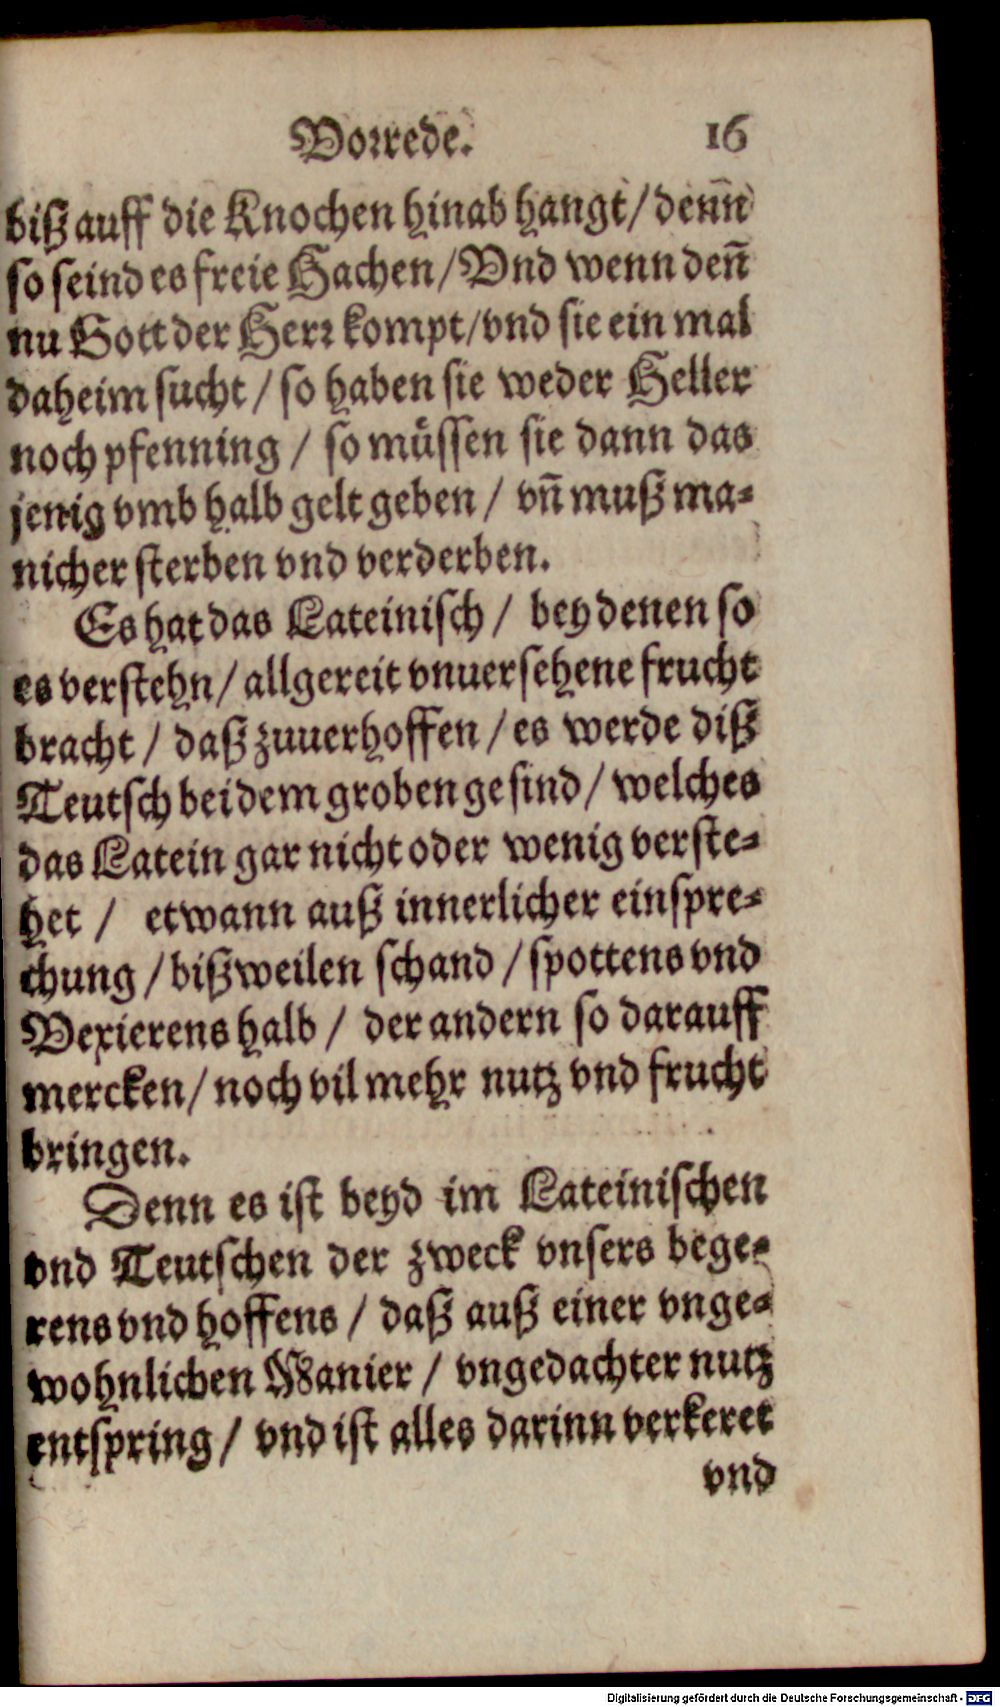 Vorrede. 16
biß auff die Knochen hinab hangt / denn̄
so seind es freie Hachen / Vnd wenn den̄
nu Gott der Herr kompt / vnd sie ein mal
daheim sucht / so haben sie weder Heller
noch pfenning / so müssen sie dann das
jenig vmb halb gelt geben / vn̄ muß ma-
nicher sterben vnd verderben.
Es hat das Lateinisch / bey denen so
es verstehn / allgereit vnuersehene frucht
bracht / daß zuuerhoffen / es werde diß
Teutsch bei dem groben gesind / welches
das Latein gar nicht oder wenig verste-
het / etwann auß innerlicher einspre-
chung / bißweilen schand / spottens vnd
Vexierens halb / der andern so darauff
mercken / noch vil mehr nutz vnd frucht
bringen.
Denn es ist beyd im Lateinischen
vnd Teutschen der zweck vnsers bege-
rens vnd hoffens / daß auß einer vnge-
wohnlichen Manier / vngedachter nutz
entspring / vnd ist alles darinn verkeret
vnd
Digitalisierung gefördert durch die Deutsche Forschungsgemeinschaft - DFG